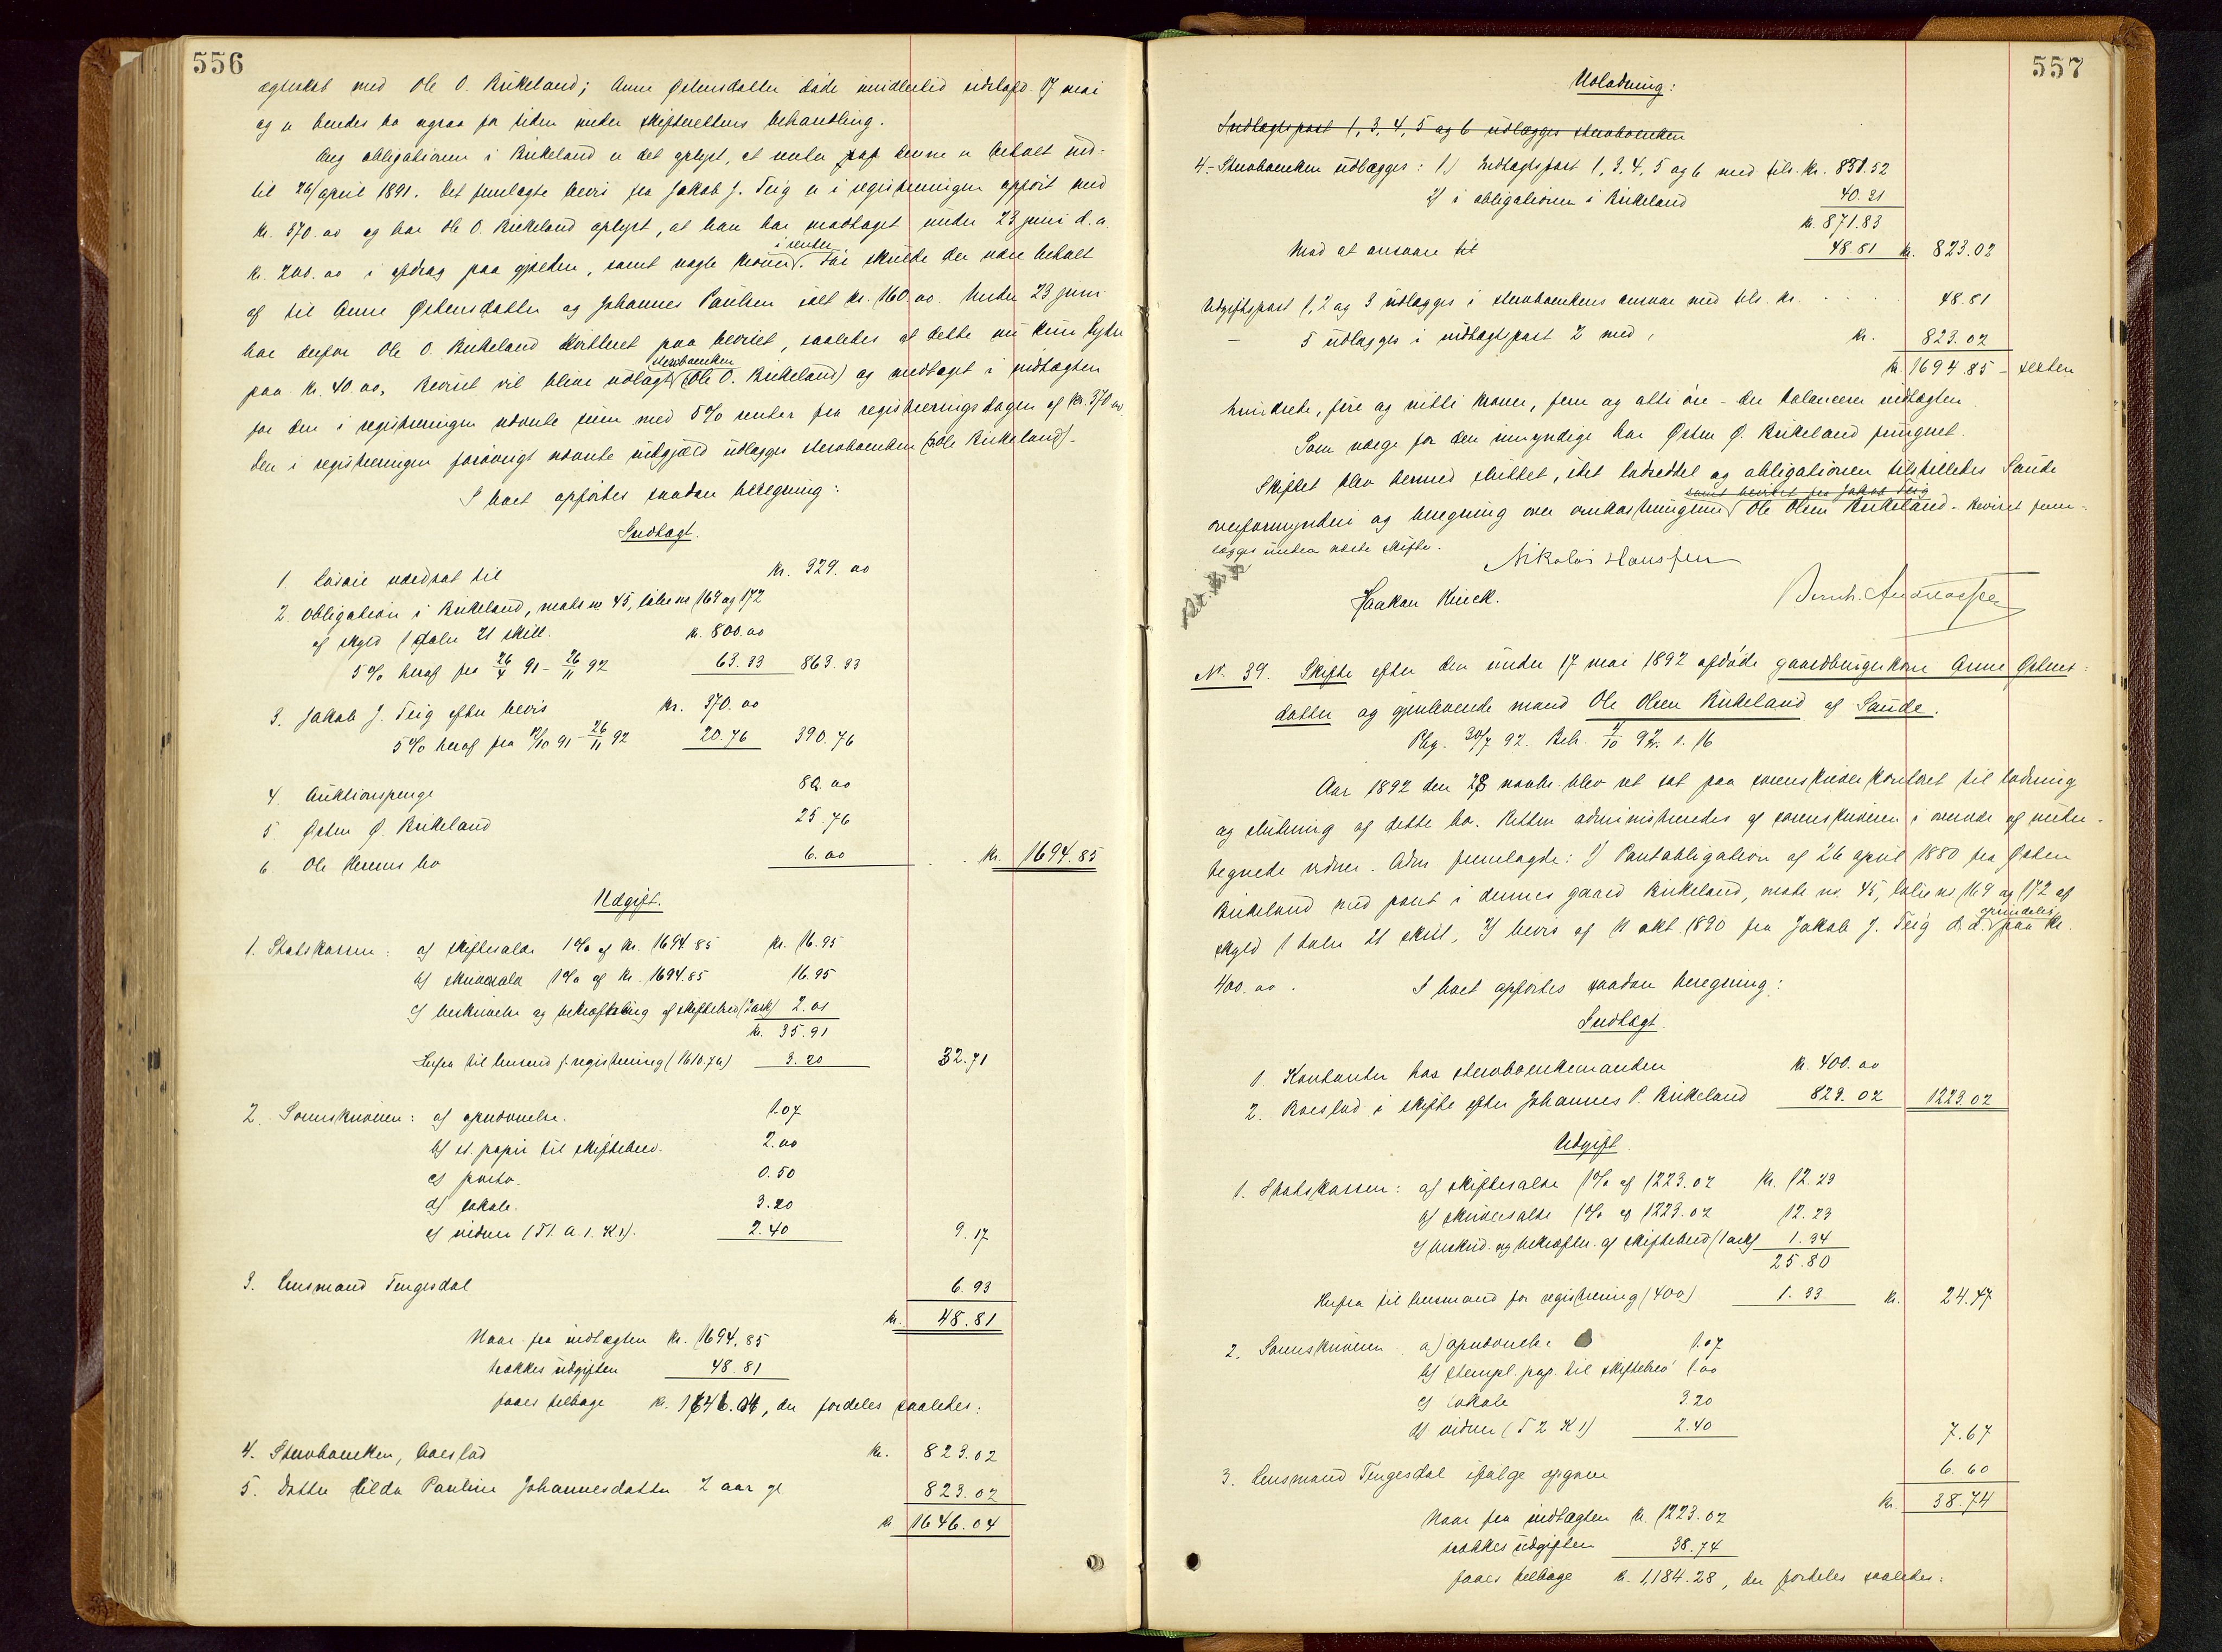 556
ægteskab med Ole O. Birkeland; Anne Østensdatter døde imidlertid sidstafd. 17 mai
og er hendes bo ogsaa for tiden under skifterettens behandling.
Ang obligationen i Birkeland er det oplyst, at renter paa denne er betalt ind-
til 26/april 1891. Det fremlagte bevis fra Jakob J. Teig er i registreringen opført med
kr. 370.00 og har Ole O. Birkeland oplyst, at han har modtaget under 23 juni d.a.
i renter
kr. 200.00 i afdrag paa gjælden, samt nogle kroner. Før skulde der være betalt
af til Anne Østensdatter og Johannes Paulsen ialt kr. 160.00. Under 23 juni
har derfor Ole O. Birkeland kvitteret paa beviset, saaledes at dette nu kun lyder
sterboenken
paa kr. 40.00. Beviset vil blive udlagt (Ole O. Birkeland) og medtaget i indtægten
for den i registreringen nævnte sum med 5% renter fra registreringsdagen af kr. 370.00.
Den i registreringen forøvrigt nævnte indgjæld udlægges sterboenken (Ole Birkeland).
I boet opførtes saadan beregning:
Indtægt.
1. Løsøie værdsat til kr. 329.00
2. Obligation i Birkeland, mats no 45, løbe no 169 og 172
af skyld 1 daler 21 skill. kr. 800.00
5% heraf fra 26/4 91 - 26/11 92 63.33 863.33
3. Jakob J. Teig efter bevis kr. 370.00
5% heraf fra 12/10 91 - 26/11 92 20.76 390.76
4. Auktionspenge 80.00
5. Østen Ø. Birkeland 25.76
6. Ole bo 6.00 kr. 1694.85
Udgift.
1. Statskassen: a) skiftesalær 1% af kr. 1694.85 kr. 16.95
b) skriversalær 1% af kr. 1694.85 16.95
c) beskrivelse og bekræftelse af skiftebrev (2 ark) 2.01
kr. 35.91
Herfra til lensmand f. registrering (1610.76) 3.20 32.71
2. Sorenskriveren: a) æskudvelse. 1.07
b) st. papir til skiftebrev. 2.00
c) porto. 0.50
d) lokale. 3.20
e) vidner (T1. a. 1. K1). 2.40 9.17
3. Lensmand Tengesdal 6.93
kr. 48.81
Naar fra indtægten kr. 1694.85
trækkes udgiften 48.81
faaes tilbage kr. 1646.04, der fordeles saaledes:
4. Sterboenken, boeslod kr. 823.02
5. Datter Hilda Pauline Johannesdatter 2 aar gl 823.02
kr 1646.04
557
Udlodning:
Indtægtspost 1, 3, 4, 5 og 6 udlægges sterboenken
4. - Sterboenken udlægges: 1) Indtægtspost 1, 3, 4, 5 og 6 med tils. kr. 831.52
2) i obligationen i Birkeland 40.31
kr. 871.83
Mod at ansvare til 48.81 kr. 823.02
Udgiftspost 1, 2 og 3 udlægges i sterboenkens ansvar med tils. kr. 48.81
- 5 udlægges i indtægtspost 2 med, kr. 823.02
kr. 1694.85 - sexten
hundrede, fire og nitti kroner, fem og otti øre - der balancerer indtægten.
Som værge for den umyndige har Østen Ø. Birkeland fungeret.
Skiftet blev hermed sluttet, idet lodseddel og obligationen tilstilledes Saude
samt beviset fra Jakob Teig
overformynderi og beregning over omkostningerne Ole Olsen Birkeland. Beviset frem-
lægges under næste skifte.
Nikolai Hanssen
Haakon Kinck.
Bernh. Andreassen
No. 39. Skifte efter den under 17 mai 1892 afdøde gaardbrugerkone Anne Østens-
datter og gjenlevende mand Ole Olsen Birkeland af Saude.
Reg. 30/7 92. Beh. 4/10 92. s. 16
Aar 1892 den 28 novbr. blev ret sat paa sorenskriverkontoret til lodning
og slutning af dette bo. Retten administreredes af sorenskriveren i overvær af under-
tegnede vidner. Adm. fremlagde: 1) Pantobligation af 26 april 1880 fra Østen
Birkeland med pant i dennes gaard Birkeland, mats no. 45, løbe no 169 og 172 af
oprindelig
skyld 1 daler 21 skill, 2) bevis af 11 okt. 1890 fra Jakob J. Teig d.d. paa kr.
400.00. I boet opførtes saadan beregning:
Indtægt.
1. Kontanter hos sterboenkemanden kr. 400.00
2. Boeslod i skifte efter Johannes P. Birkeland 823.02 1223.02
Udgift.
1. Statskassen: a) skiftesalær 1% af 1223.02 kr. 12.23
b) skriversalær 1% af 1223.02 12.23
c) beskriv. og bekræftn. af skiftebrev (1 ark) 1.34
25.80
Herfra til lensmand for registrering (400) 1.33 kr. 24.47
2. Sorenskriveren a) æskudvelse 1.07
b) stempl. pap. til skiftebrev 1.00
c) lokale 3.20
d) vidner (T 2 K1) 2.40 7.67
3. Lensmand Tengesdal ifølge opgave 6.60
kr. 38.74
Naar fra indtægten kr. 1223.02
trækkes udgiften 38.74
faaes tilbage kr. 1,184.28, der fordeles saaledes: